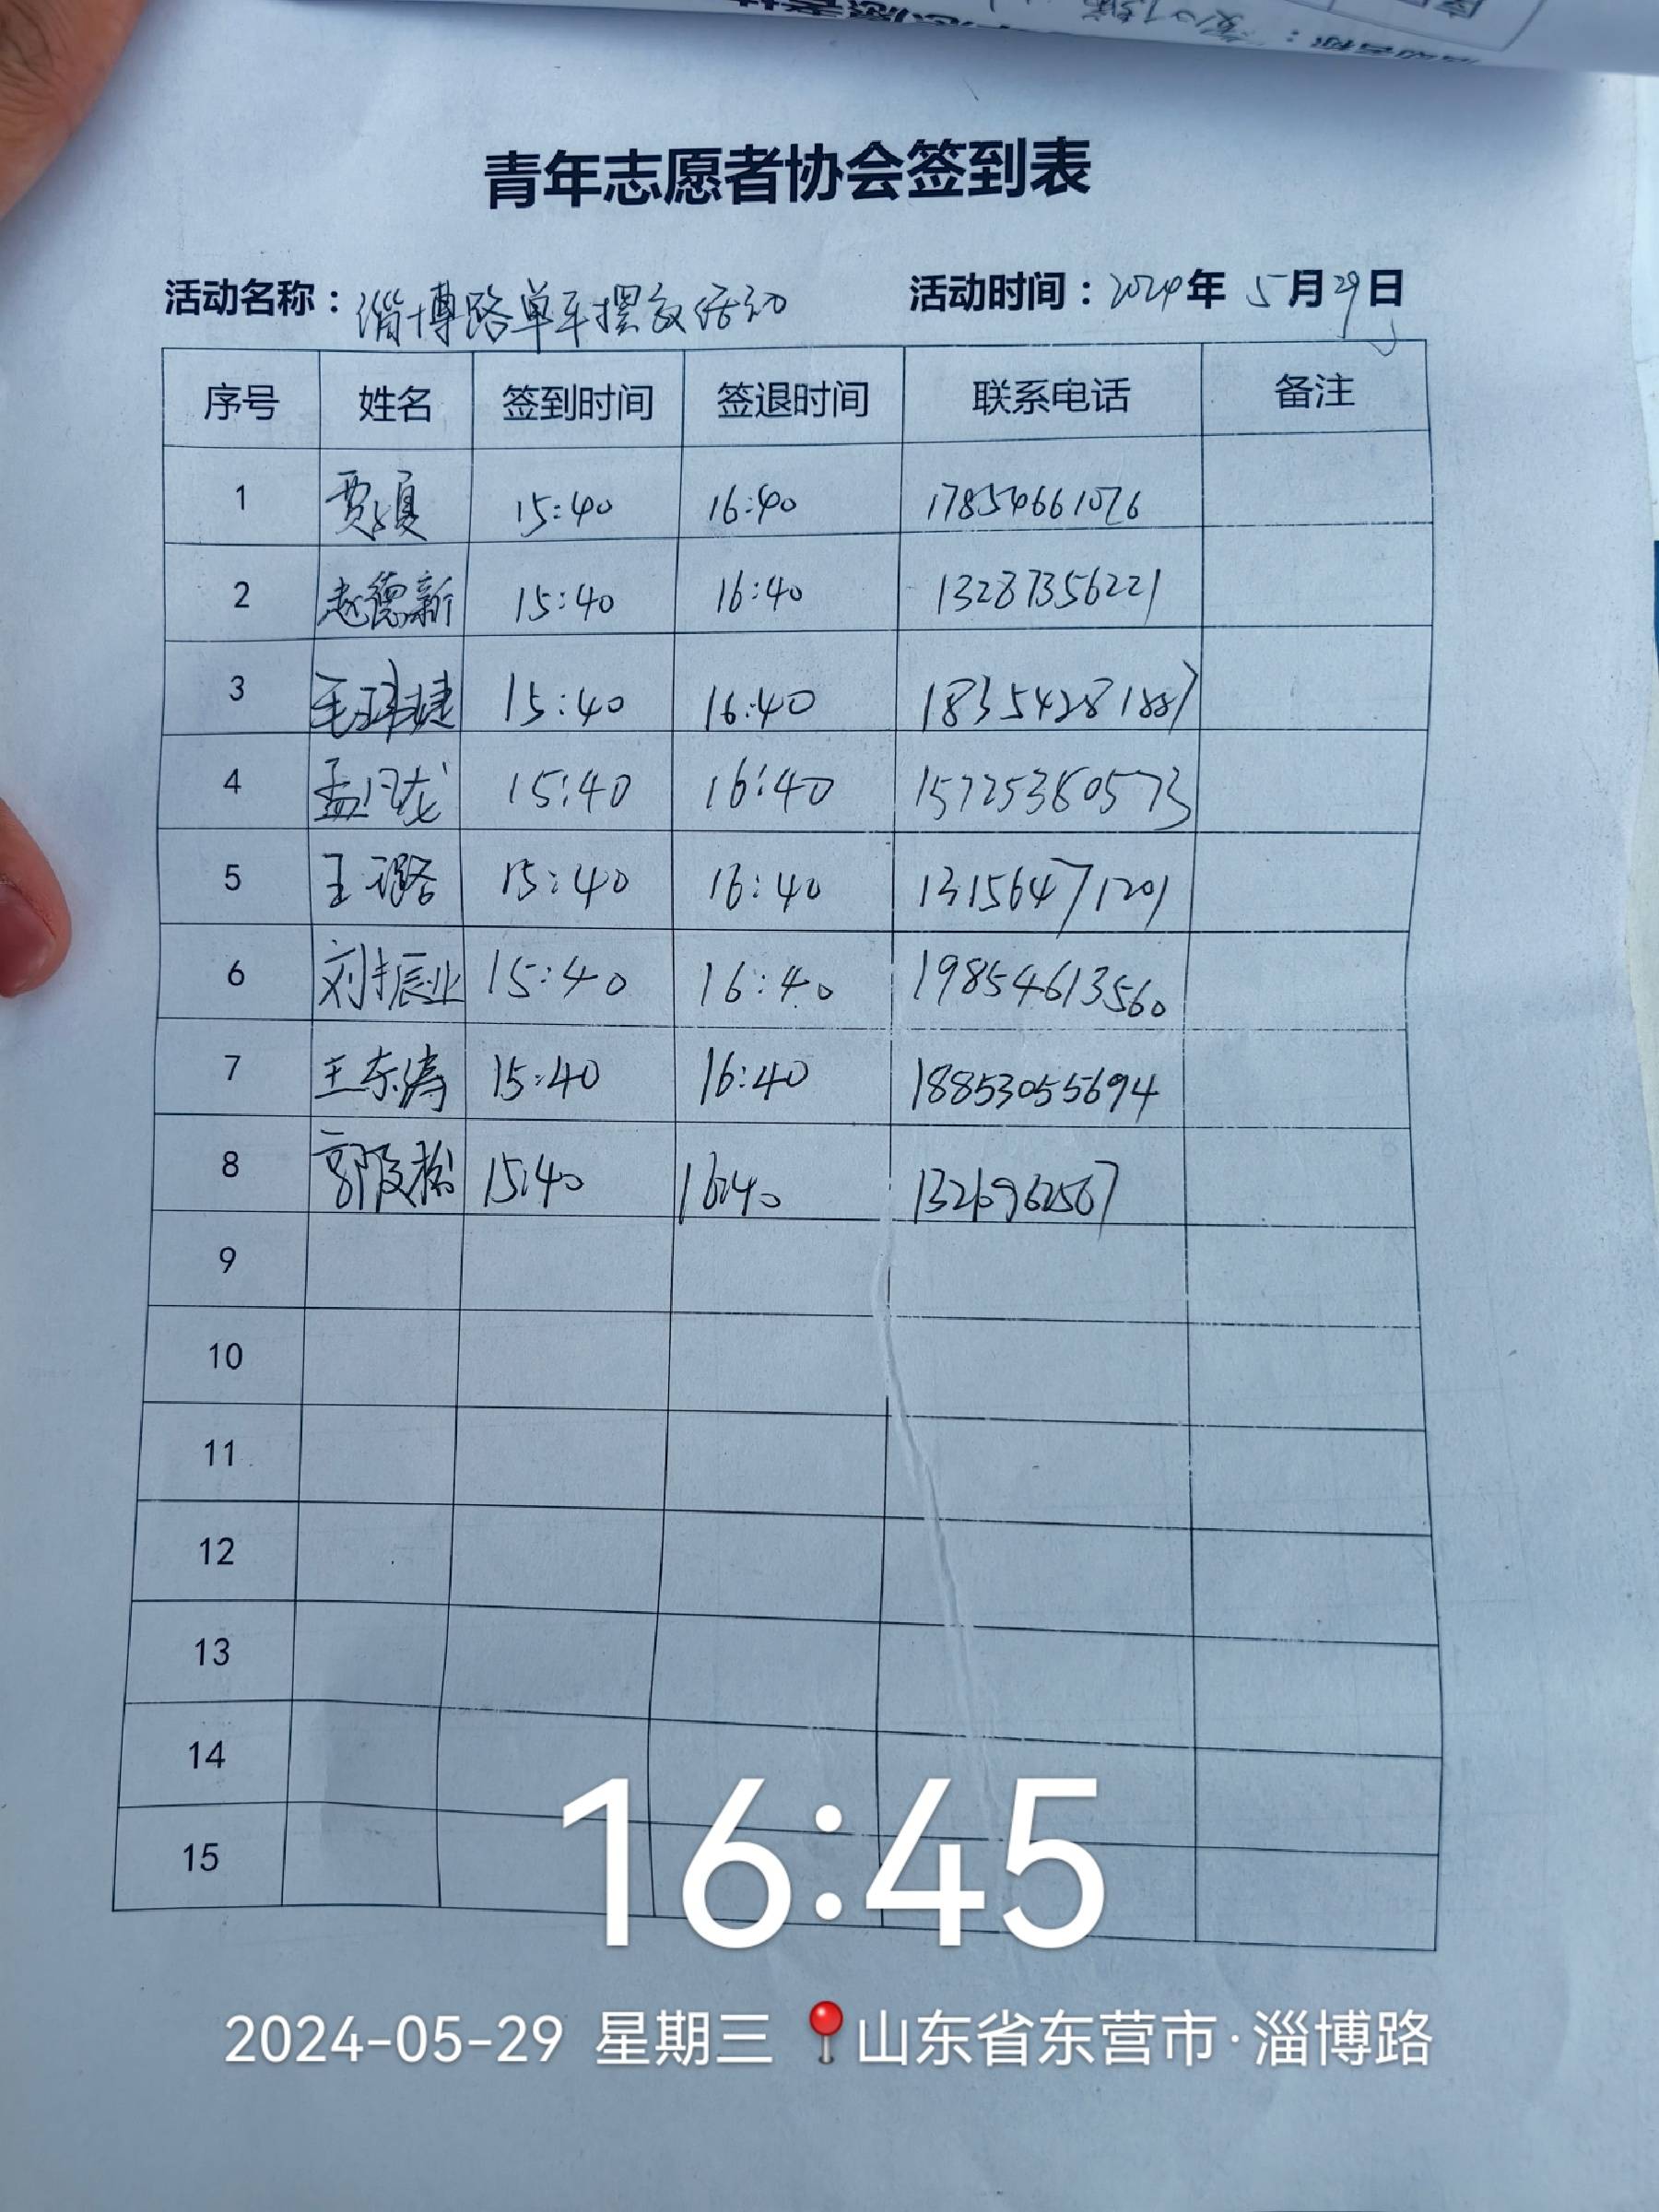 青年志愿者协会签到表
活动名称：淄博路单车摆放活动 活动时间：2024年 5月29日
序号 姓名 签到时间 签退时间 联系电话 备注
1 贾夏 15:40 16:40 17854661076
2 赵德新 15:40 16:40 13287356221
3 毛玮婕 15:40 16:40 18354281887
4 孟凡龙 15:40 16:40 15725380573
5 王璐 15:40 16:40 13156471201
6 刘振业 15:40 16:40 19854613560
7 王东涛 15:40 16:40 18853055694
8 15:40 16:40
9
10
11
12
13
14
15
16:45
2024-05-29 星期三 山东省东营市·淄博路